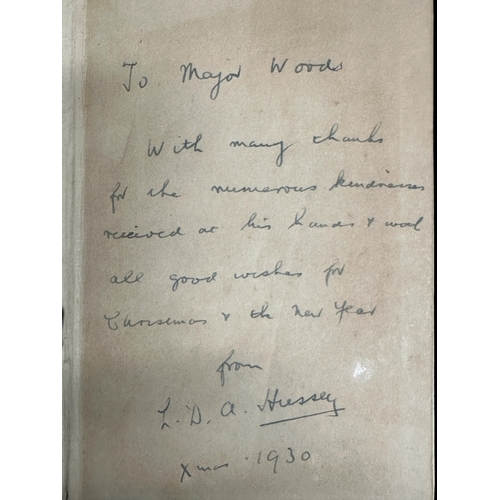 To Major Woods
With many thanks
for the numerous kindnesses
received at his hands & with
all good wishes for
Christmas & the New Year
from
L. D. A. Hussey
Xmas. 1930